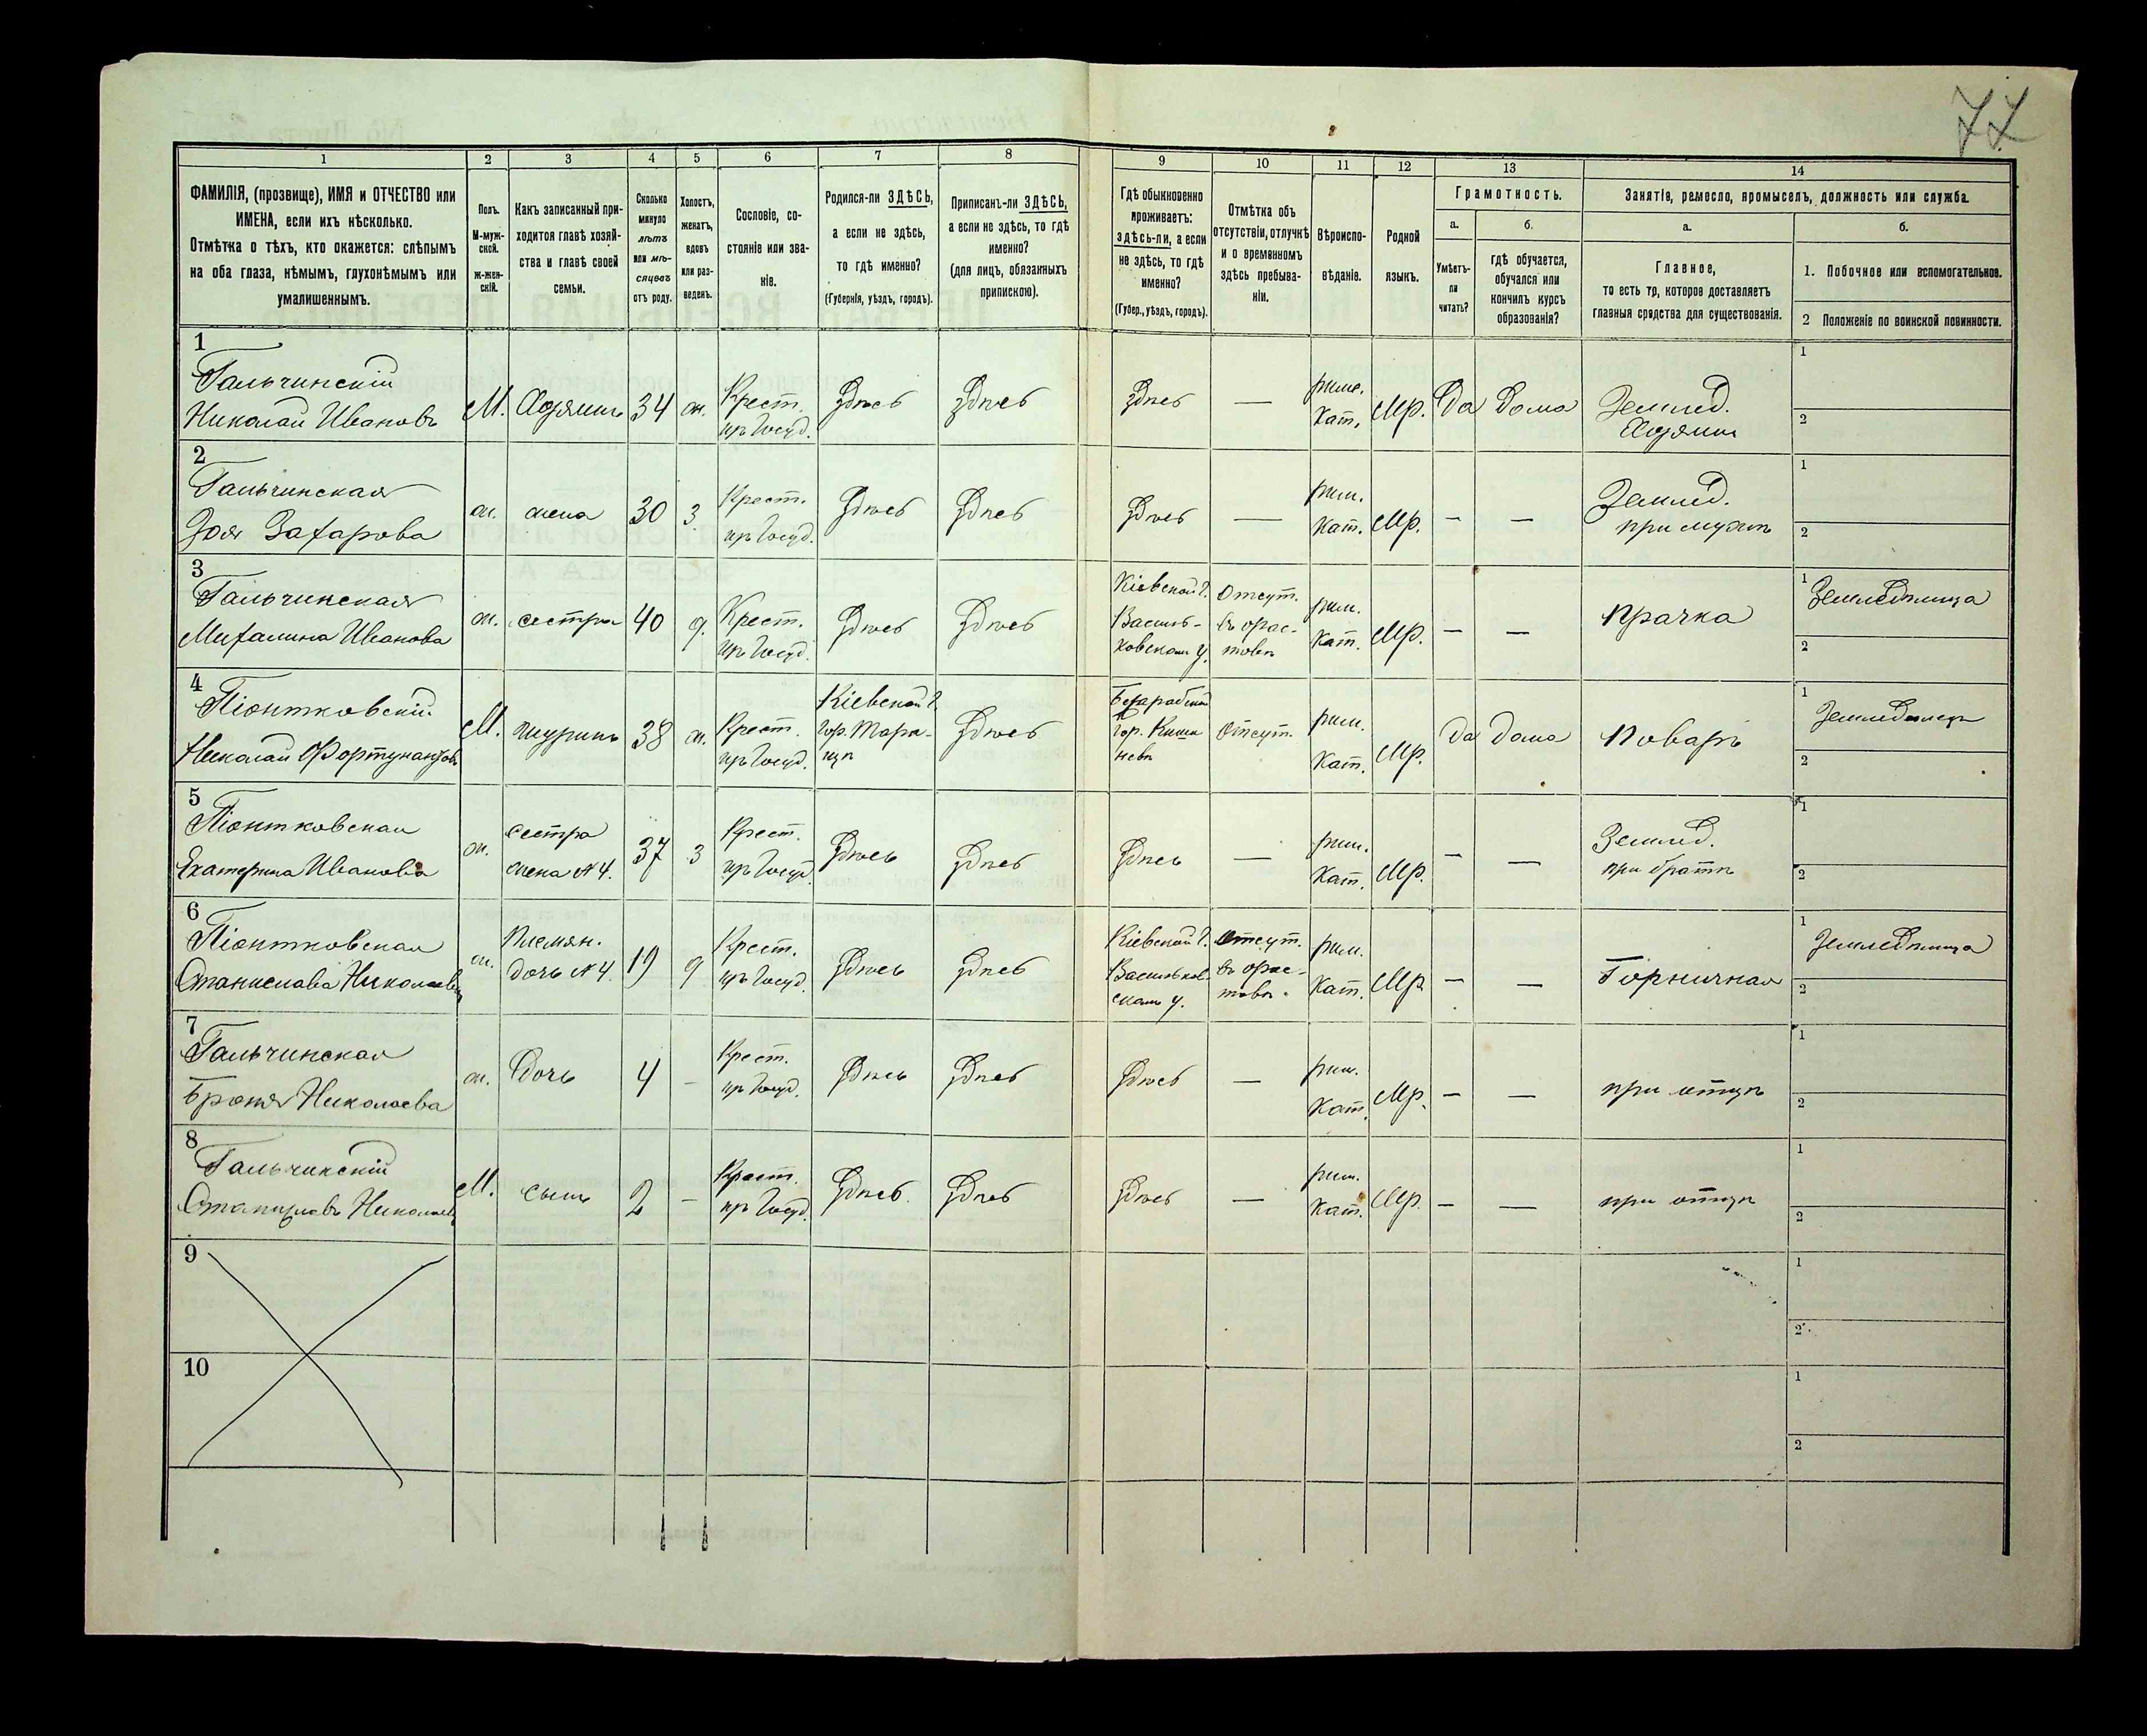 77
1 2 3 4 5 6 7 8 9 10 11 12 13 14
ФАМИЛІЯ, (прозвище), ИМЯ и ОТЧЕСТВО или
ИМЕНА, если ихъ нѣсколько.
Отмѣтка о тѣхъ, кто окажется: слѣпымъ
на оба глаза, нѣмымъ, глухонѣмымъ или
умалишеннымъ.
Полъ.
М-муж-
ской.
ж-жен-
скій.
Какъ записанный при-
ходится главѣ хозяй-
ства и главѣ своей
семьи.
Сколько
минуло
лѣтъ
или мѣ-
сяцевъ
отъ роду.
Холостъ,
женатъ,
вдовъ
или раз-
веденъ.
Сословіе, со-
стояніе или зва-
ніе.
Родился-ли ЗДѢСЬ,
а если не здѣсь,
то гдѣ именно?
(Губернія, уѣздъ, городъ).
Приписанъ-ли ЗДѢСЬ,
а если не здѣсь, то гдѣ
именно?
(для лицъ, обязанныхъ
припискою).
Гдѣ обыкновенно
проживаетъ:
здѣсь-ли, а если
не здѣсь, то гдѣ
именно?
(Губер., уѣздъ, городъ).
Отмѣтка объ
отсутствіи, отлучкѣ
и о временномъ
здѣсь пребыва-
ніи.
Вѣроиспо-
вѣданіе.
Родной
языкъ.
Грамотность.
а.
Умѣетъ-
ли
читать?
б.
гдѣ обучается,
обучался или
кончилъ курсъ
образованія?
Занятія, ремесло, промыселъ, должность или служба.
а.
Главное,
то есть то, которое доставляетъ
главныя средства для существованія.
б.
1. Побочное или вспомогательное.
2 Положеніе по воинской повинности.
1
Гальчинскій
Николай Ивановъ
М. Хозяинъ 34 ж. Крест.
Здѣсь Здѣсь Здѣсь —
Кат. Мр. Да Дома Землед.
Хозяинъ
1
2
2
Гальчинская
Зоя Захарова
ж. жена 30 з. Крест.
Здѣсь Здѣсь Здѣсь —
рим.
Кат. Мр. — — Землед.
при мужѣ
1
2
3
Гальчинская
Михалина Иванова
ж. сестра 40 д. Крест.
Здѣсь Здѣсь
Кіевской г.
Василь-
ковскомъ у.
Отсут.
рим.
Кат. Мр. — — Прачка
1 Земледѣлица
2
4
Піонтковскій
Николай Фортунатовъ
М. шуринъ 38 ж. Крест.
Кіевской г.
гор. Тара-
щѣ
Здѣсь
Бессарабской
гор. Киши
невѣ
Отсут.
рим.
Кат. Мр. Да Дома Поваръ
1 Земледѣлецъ
2
5
Піонтковская
Екатерина Иванова
ж. сестра
жена № 4. 37 з Крест.
Здѣсь Здѣсь Здѣсь —
рим.
Кат. Мр. — — Землед.
при братѣ
1
2
6
Піонтковская
Станислава Николаева
ж. Племян.
дочь № 4. 19 д Крест.
Здѣсь Здѣсь
Кіевской г.
Васильков-
скомъ у.
Отсут.
рим.
Кат. Мр. — — Горничная
1 Земледѣлица
2
7
Гальчинская
Броня Николаева
ж. Дочь 4 — Крест.
Здѣсь Здѣсь Здѣсь —
рим.
Кат. Мр. — — при отцѣ
1
2
8
Гальчинскій
Станиславъ Николаевъ
М. сынъ 2 — Крест.
Здѣсь Здѣсь Здѣсь —
рим.
Кат. Мр. — — при отцѣ
1
2
9
1
2
10
1
2